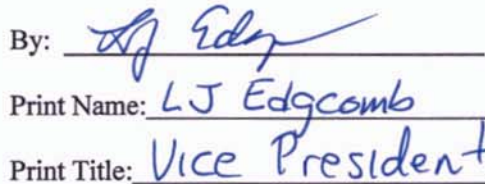 By: LJ Edg
Print Name: LJ Edgcomb
Print Title: Vice President